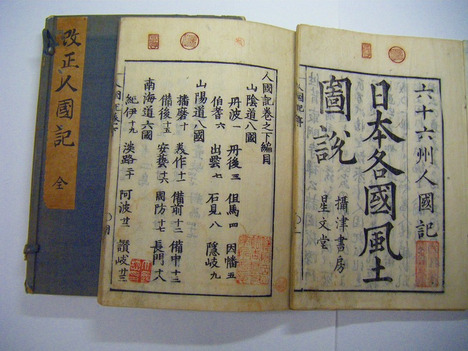 六十六州人國記
日本各國風土
圖說
攝津書房
星文堂
人國記卷之下編目
山陰道八國
丹波一 丹後三 但馬四 因幡五
伯耆六 出雲七 石見八 隱岐九
山陽道八國
播磨十 美作十一 備前十二 備中
備後十五 安藝十六 周防十七 長門十八
南海道六國
紀伊十九 淡路二十 阿波廿二 讚岐廿三
改正人國記 全